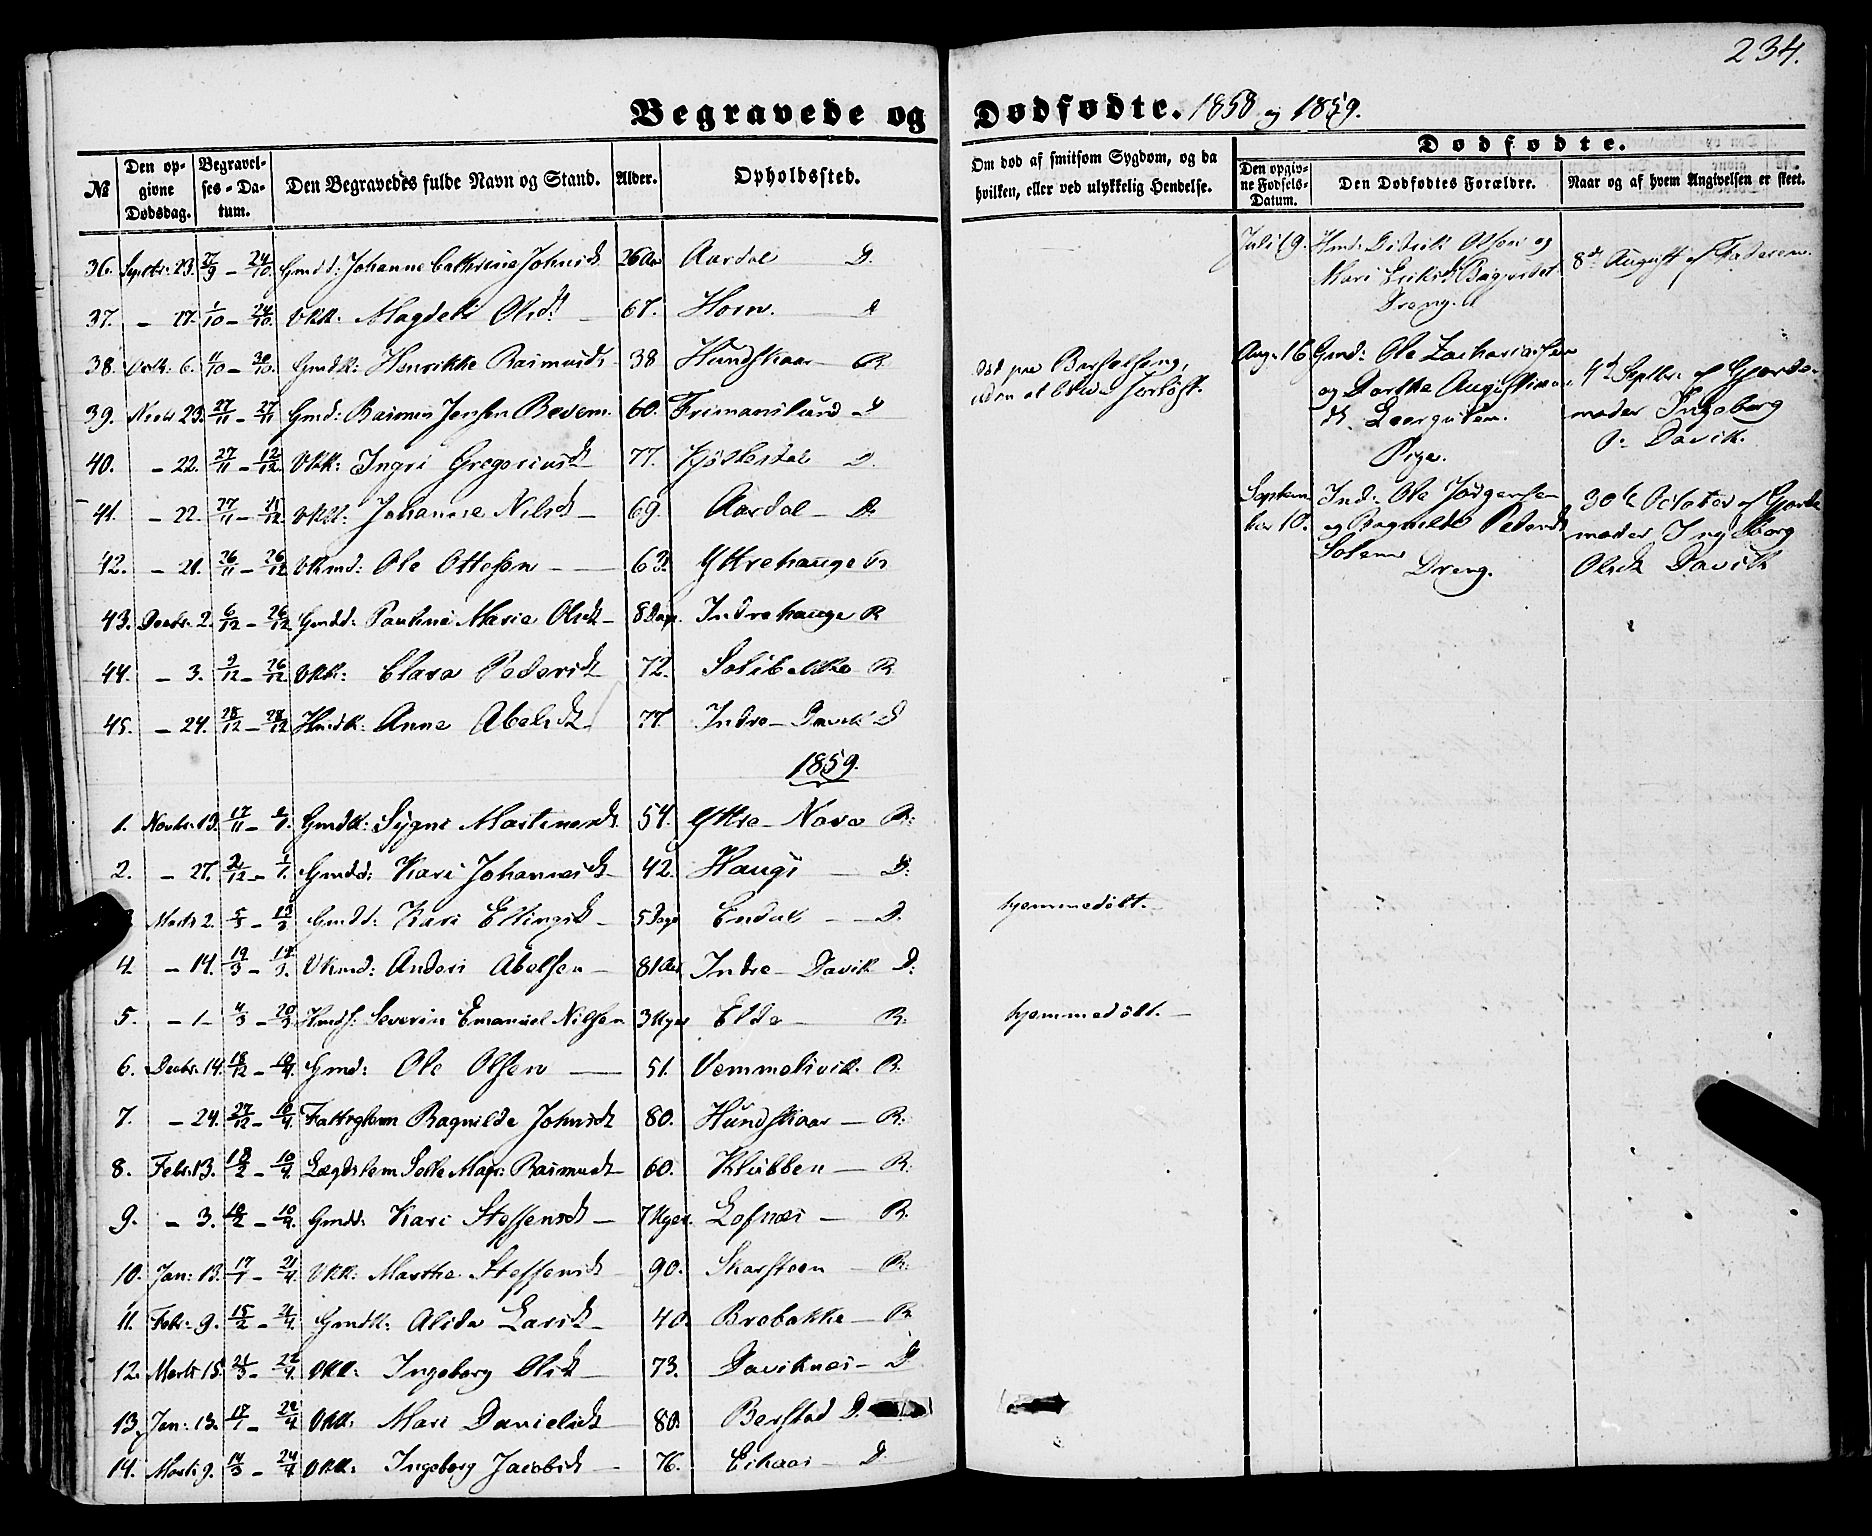 234.
Begravede og Dødfødte. 1858 og 1859.
№ | Den opgivne Dødsdag. | Begravelses-Datum. | Den Begravedes fulde Navn og Stand. | Alder. | Opholdssted. | Om død af smitsom Sygdom, og da hvilken, eller ved ulykkelig Hendelse.
36. Septbr. 23. 27/9 – 24/10. Gmdd: Johanne Cathrine Johnsd. 26 Aar Aardal D.
37. – 17. 1/10 – 24/10. VKK: Magdeli Olsd. 67. Horn. D
38. Octb: 6. 11/10 – 30/10. Gmdk: Henrikke Rasmusd. 38 Hundskaar R. død paa Barselseng, uden at blive forløst.
39. Novbr 23. 27/11 – 27/11 Gmd: Rasmus Jensen 60. Frimanslund D
40. – 22. 27/11 – 12/12 VKK: Ingri Gregoriusd. 77. D.
41. – 22. 27/11 – VKK: Johanne Nilsd. 69. Aardal – D.
42. – 21. 26/11 – 26/12 VKmd: Ole Ottesen – Yttrehauge
43. Decbr. 2. 6/12 – 26/12 Gmdd: Pauline Marie Olsd. 8 Dage. Indrehauge R
44. – 3. 9/12 – 26/12 VKK: Clara Pedersd. 72. Solibakke R
45. – 24. 28/12 – 28/12 Hmdk: Anne Abelsd. 77. Indre-Davik D
1859.
1. Novbr. 13. 17/11 – 1/1. Gmdk: Sygni Martinusd. 54. Yttre-Nave R.
2. – 27. 2/12 – 1/1. Gmdd: Kari Johannesd. 42. Haugs – D.
Marts 2. 5/3 – 13/3 Gmdd: Kari Ellingsd. 5 Dage Endal – D. hjemmedøbt.
4. – 14. 19/3 – 19/3. VKmd: Anders Abelsen – 81 Aar Indre-Davik D.
5. – 1 – 4/3 – 20/3 Hmds: Severin Emanuel Nilsen 3 Uger Elde – R. hjemmedøbt. –
6. Decbr. 14. 18/12 – 10/4. Gmd: Ole Olsen — 51. Vemmelsvik. R.
7. – 24. 27/12 – 10/4. Fattiglem Ragnilde Johnsd. 80. Hundskaar – R.
8. Febr. 13. 18/2 – 10/4. Lægdslem Rasmusd. 60. Klubben – R.
9. – 3. 10/2 – 10/4. Gmdd: Kari Steffensd. – 7 Uger. Lofnæs – R.
10. Jan: 13. 17/1 – 21/4. VKK: Marthe Steffensd. 90. Skarsteen – R.
11. Febr. 9. 15/2 – 21/4. Gmdk: Alida Larsd. 40. Brebakke – R
12. Marts 15. 21/3 – 22/4. VKK: Ingeborg Olsd. – 73. Daviknæs – D
13. Jan: 13. 18/1 – 22/4 VKK: Mari Danielsd. 80. Berstad D.
14. Marts 9. 14/3 – 24/4 VKK: Ingeborg Jacobsd. – 76. Eikaas – D
Dødfødte.
Den opgivne Fødsels-Datum. | Den Dødfødtes Forældre. | Naar og af hvem Angivelsen er skeet.
Juli 19. Hmd: Didrik Olsen og
Mari Eriksd.
Dreng.
8de August af Faderen.
Aug. 16 Gmd: Ole Zachariassen
og Dorthe Augustinusd.
Pige.
4de Septbr. af Gjordemoder Ingeborg
Davik.
September 10. Ind: Ole Jørgensen
og Ragnilde Pedersd.
Dreng.
30te October af Gjordemoder Ingeborg
Olsd. Davik